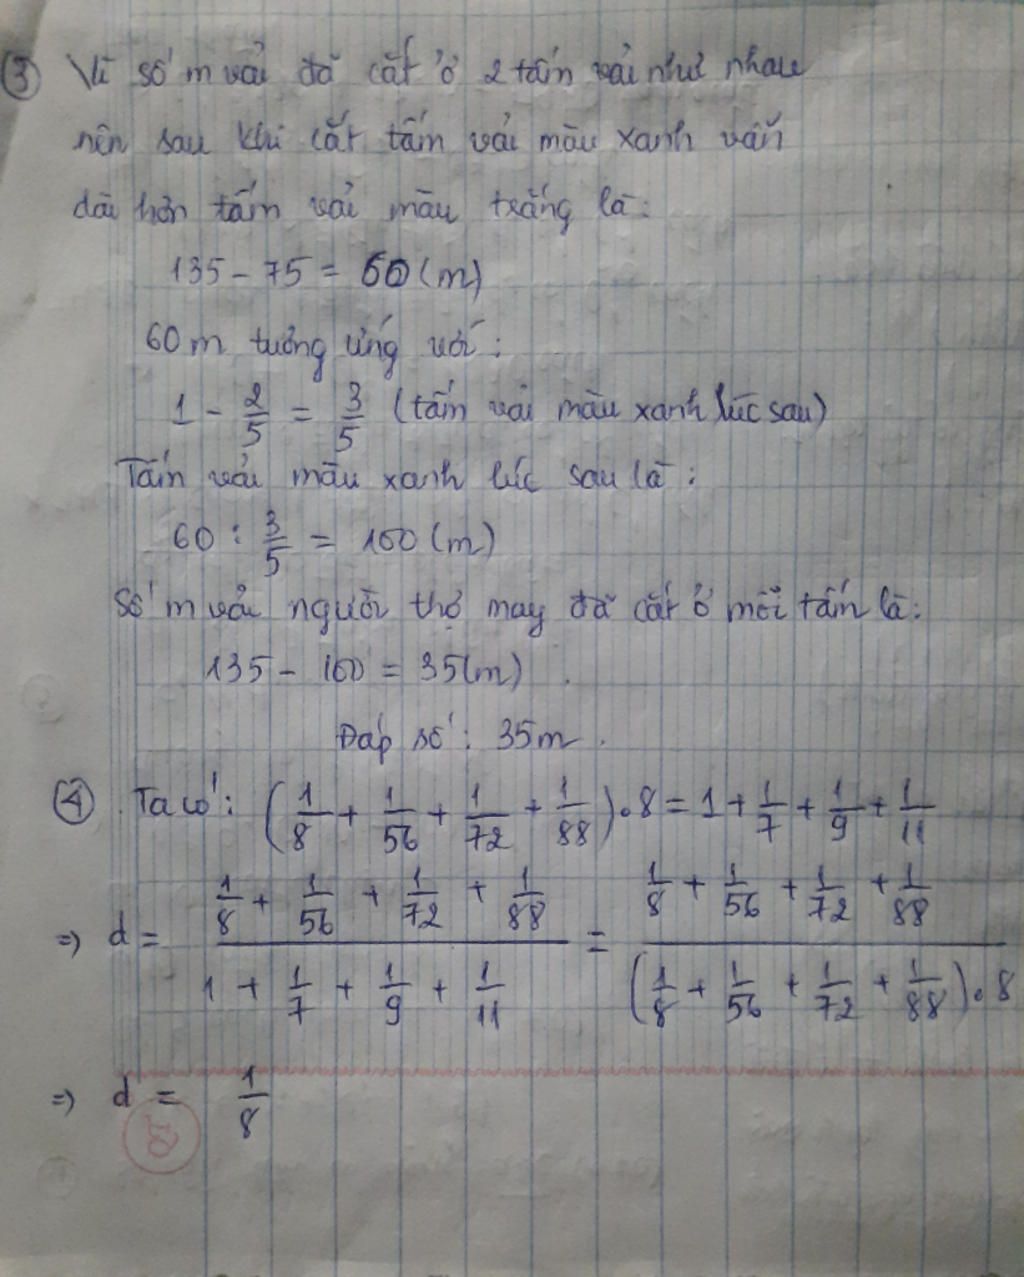 ③ Vì số m vải đã cắt ở 2 tấm vải như nhau
nên sau khi cắt tấm vải màu xanh vẫn
dài hơn tấm vải màu trắng là:
135 - 75 = 60 (m)
60 m tương ứng với:
1 - 2/5 = 3/5 (tấm vải màu xanh lúc sau)
Tấm vải màu xanh lúc sau là:
60 : 3/5 = 100 (m)
Số m vải người thợ may đã cắt ở mỗi tấm là:
135 - 100 = 35 (m).
Đáp số: 35m.
④. Ta có: (1/8 + 1/56 + 1/72 + 1/88).8 = 1 + 1/7 + 1/9 + 1/11
=> d = (1/8 + 1/56 + 1/72 + 1/88)/(1 + 1/7 + 1/9 + 1/11) = (1/8 + 1/56 + 1/72 + 1/88)/((1/8 + 1/56 + 1/72 + 1/88).8)
=> d = 1/8